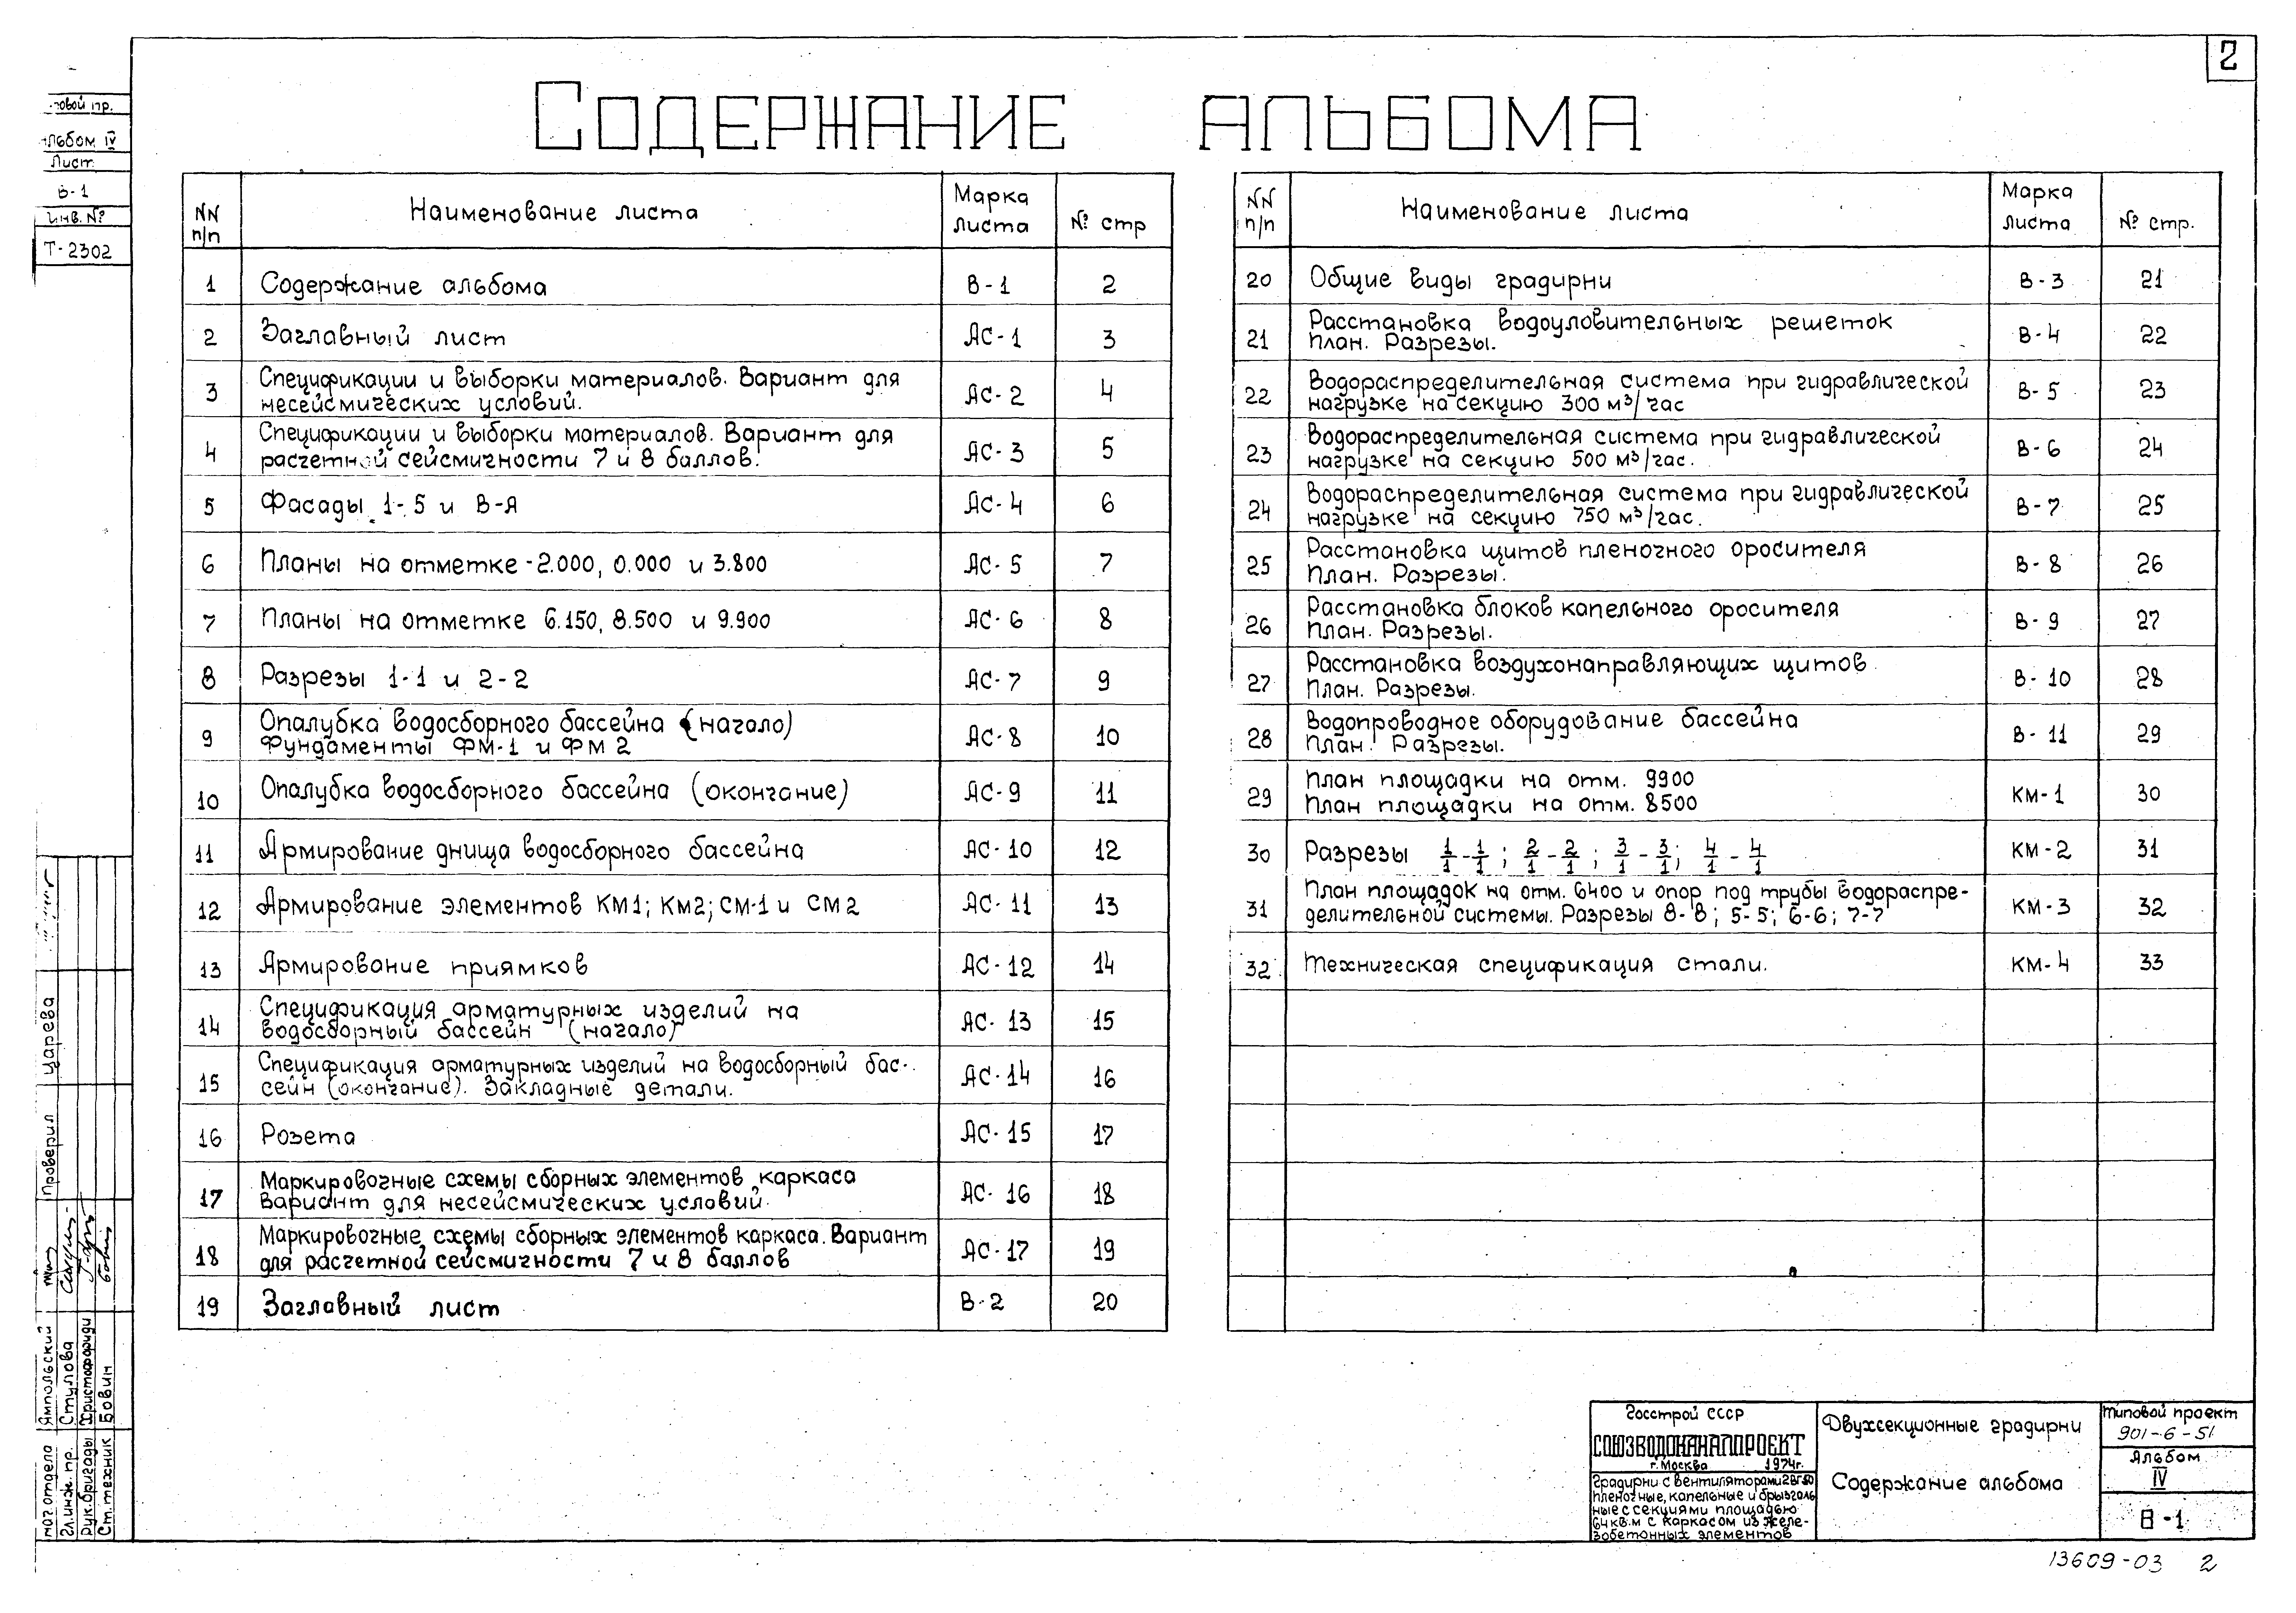 2
Содержание альбома
альбом IV
Лист
В-1
Инв. №
Т-2302
NN п/п
Наименование листа
Марка листа
№ стр
1 Содержание альбома В-1 2
2 Заглавный лист АС-1 3
3 Спецификации и выборки материалов. Вариант для
несейсмических условий. АС-2 4
4 Спецификации и выборки материалов. Вариант для
расчетной сейсмичности 7 и 8 баллов. АС-3 5
5 Фасады 1-5 и В-Я АС-4 6
6 Планы на отметке -2.000, 0.000 и 3.800 АС-5 7
7 Планы на отметке 6.150, 8.500 и 9.900 АС-6 8
8 Разрезы 1-1 и 2-2 АС-7 9
9 Опалубка водосборного бассейна (начало)
Фундаменты ФМ-1 и ФМ 2 АС-8 10
10 Опалубка водосборного бассейна (окончание) АС-9 11
11 Армирование днища водосборного бассейна АС-10 12
12 Армирование элементов КМ1; КМ2; СМ-1 и СМ2 АС-11 13
13 Армирование приямков АС-12 14
14 Спецификация арматурных изделий на
водосборный бассейн (начало) АС-13 15
15 Спецификация арматурных изделий на водосборный бас-
сейн (окончание). Закладные детали. АС-14 16
16 Розета АС-15 17
17 Маркировочные схемы сборных элементов каркаса
Вариант для несейсмических условий. АС-16 18
18 Маркировочные схемы сборных элементов каркаса. Вариант
для расчетной сейсмичности 7 и 8 баллов АС-17 19
19 Заглавный лист В-2 20
NN п/п
Наименование листа
Марка листа
№ стр.
20 Общие виды градирни В-3 21
21 Расстановка водоуловительных решеток
План. Разрезы. В-4 22
22 Водораспределительная система при гидравлической
нагрузке на секцию 300 м³/час В-5 23
23 Водораспределительная система при гидравлической
нагрузке на секцию 500 м³/час. В-6 24
24 Водораспределительная система при гидравлической
нагрузке на секцию 750 м³/час. В-7 25
25 Расстановка щитов пленочного оросителя
План. Разрезы. В-8 26
26 Расстановка блоков капельного оросителя
План. Разрезы. В-9 27
27 Расстановка воздухонаправляющих щитов
План. Разрезы. В-10 28
28 Водопроводное оборудование бассейна
План. Разрезы. В-11 29
29 План площадки на отм. 9900
План площадки на отм. 8500 КМ-1 30
30 Разрезы 1/1-1/1; 2/1-2/1; 3/1-3/1; 4/1-4/1 КМ-2 31
31 План площадок на отм. 6400 и опор под трубы водораспре-
делительной системы. Разрезы 8-8; 5-5; 6-6; 7-7 КМ-3 32
32 Техническая спецификация стали. КМ-4 33
Царева
Проверил
нач. отдела Ямпольский
гл. инж. пр. Стулова
Рук. бригады Христофориди
Ст. техник Бовин
Госстрой СССР
СОЮЗВОДОКАНАЛПРОЕКТ
г. Москва 1974г.
Градирни с вентиляторами 2ВГ50
пленочные, капельные и брызгаль
ные с секциями площадью
64 кв.м с каркасом из желе-
зобетонных элементов
Двухсекционные градирни
Содержание альбома
Типовой проект
901-6-51
Альбом
IV
В-1
13609-03 2